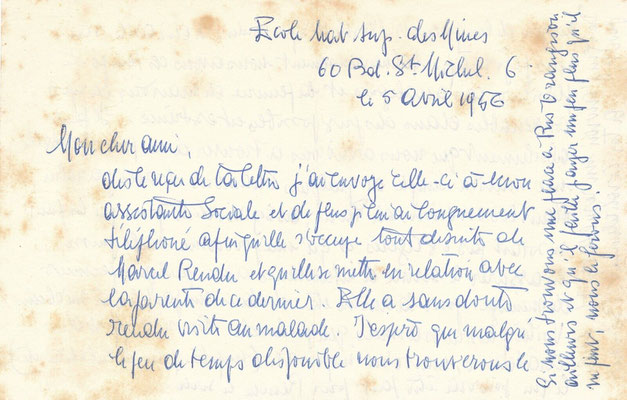 Ecole nat sup. des Mines
60 Bd. St Michel. 6
le 5 avril 1956
Mon cher ami,
dès le reçu de ta lettre j'ai envoyé celle-ci à mon
assistante sociale et de plus je lui ai longuement
téléphoné afin qu'elle s'occupe tout de suite de
Marcel Rendu et qu'elle se mette en relation avec
la parente de ce dernier. Elle a sans doute
rendu visite au malade. J'espère que malgré
le peu de temps disponible nous trouverons le
Si nous trouvons une place à
ailleurs et qu'il faille payer un peu plus qu'il
ne faut, nous le ferons.